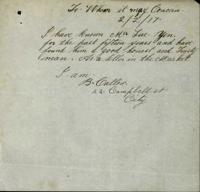 To Whom it may Concern
2/2/17
I have known Mr Lue Yon
for the past fifteen years and have
found him a good honest and trusty
man. As a seller in the Market
I am
B. Callos
22 Campbell st
City